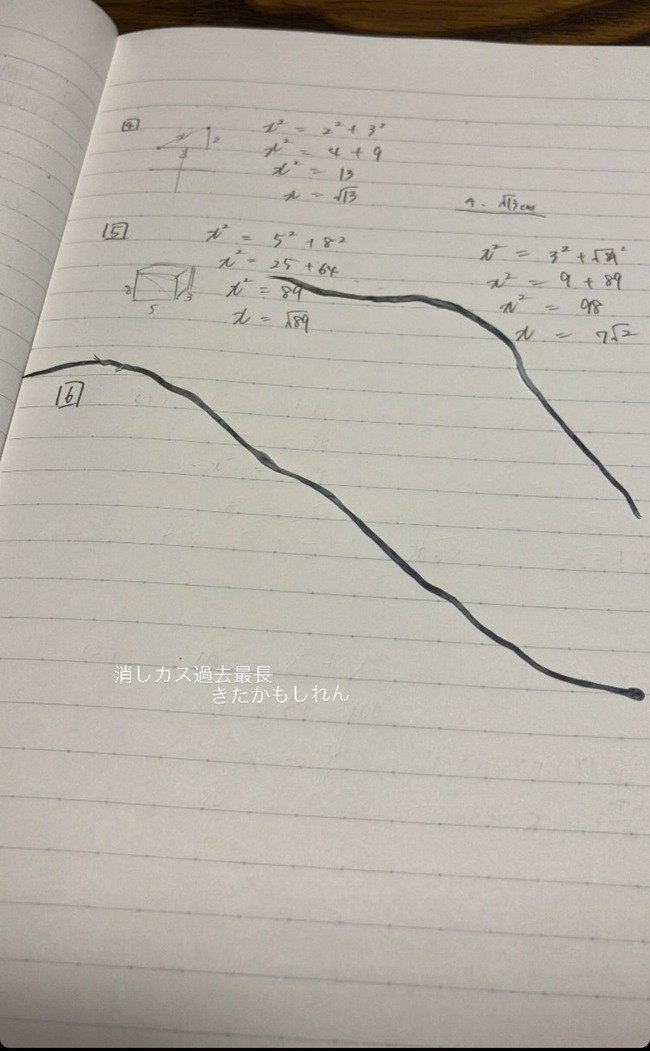 14
x
2
3
x² = 2² + 3²
x² = 4 + 9
x² = 13
x = √13
A. √13cm
15
8
5
3
x² = 5² + 8²
x² = 25 + 64
x² = 89
x = √89
x² = 3² + √89²
x² = 9 + 89
x² = 98
x = 7√2
16
消しカス過去最長
きたかもしれん